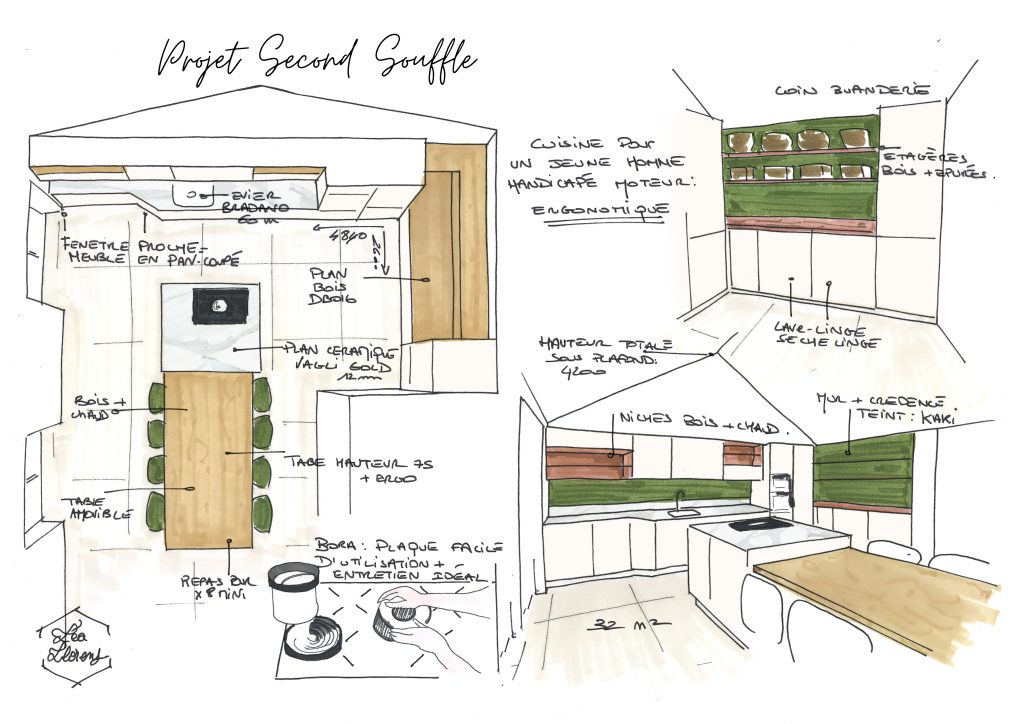 Projet Second Souffle
EVIER
BRADANO
60 m
FENETRE PROCHE -
MEUBLE EN PAN-COUPÉ
PLAN
BOIS
DB016
PLAN CERAMIQUE
VAGLI GOLD
12 mm
BOIS +
CHAUD
TABE HAUTEUR 75
+ ERGO
TABLE
AMOVIBLE
REPAS POUR
x 8 MINI
BORA : PLAQUE FACILE
D'UTILISATION +
ENTRETIEN IDÉAL
Léa
Llorens
CUISINE POUR
UN JEUNE HOMME
HANDICAPÉ MOTEUR :
ERGONOMIQUE
COIN BUANDERIE
ETAGÈRES
BOIS + EPURÉS.
LAVE-LINGE
SECHE LINGE
HAUTEUR TOTALE
SOUS PLAFOND :
4200
NICHES BOIS + CHAUD.
MUR + CREDENCE
TEINT : KAKI
32 m2